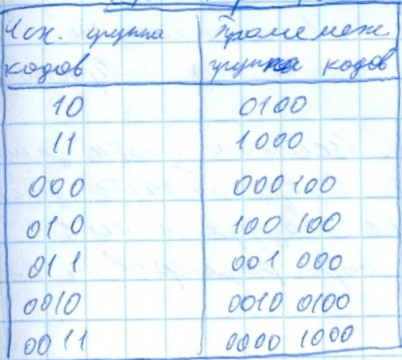 Исх. группа Промежеж.
кодов группа кодов
10 0100
11 1000
000 000100
010 100 100
011 001 000
0010 0010 0100
0011 0000 1000